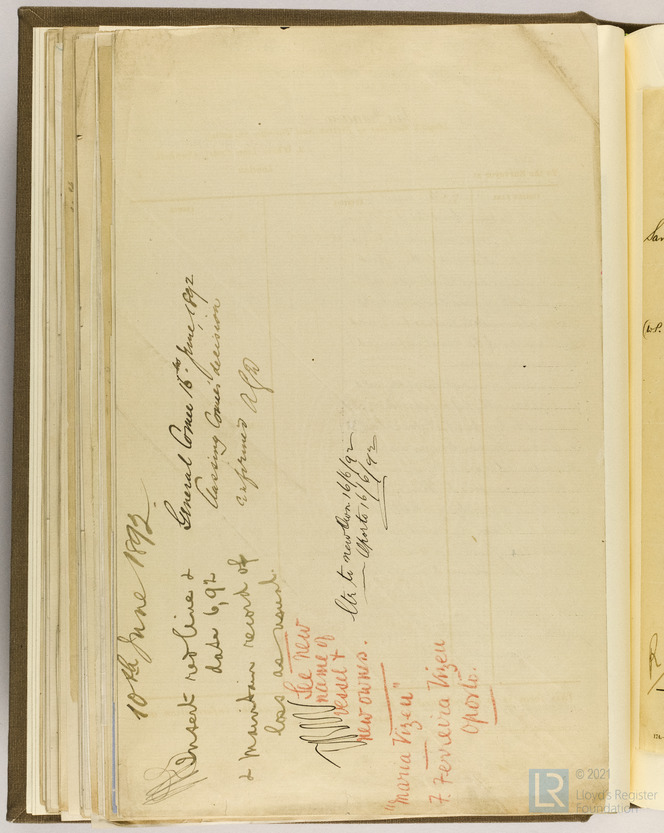 10th June 1892.
Insert red line &
date 6,92
& maintain record of
loss as usual.
General Comee 16th June, 1892
Classing Comee's decision
confirmed
Ltr to new Own 16/6/92
Oporto 16/6/92
See new
name of
vessel &
new owners.
"Maria Vizeu"
F. Ferreira Vizeu
Oporto.
© 2021
LR
Lloyd's Register
Foundation